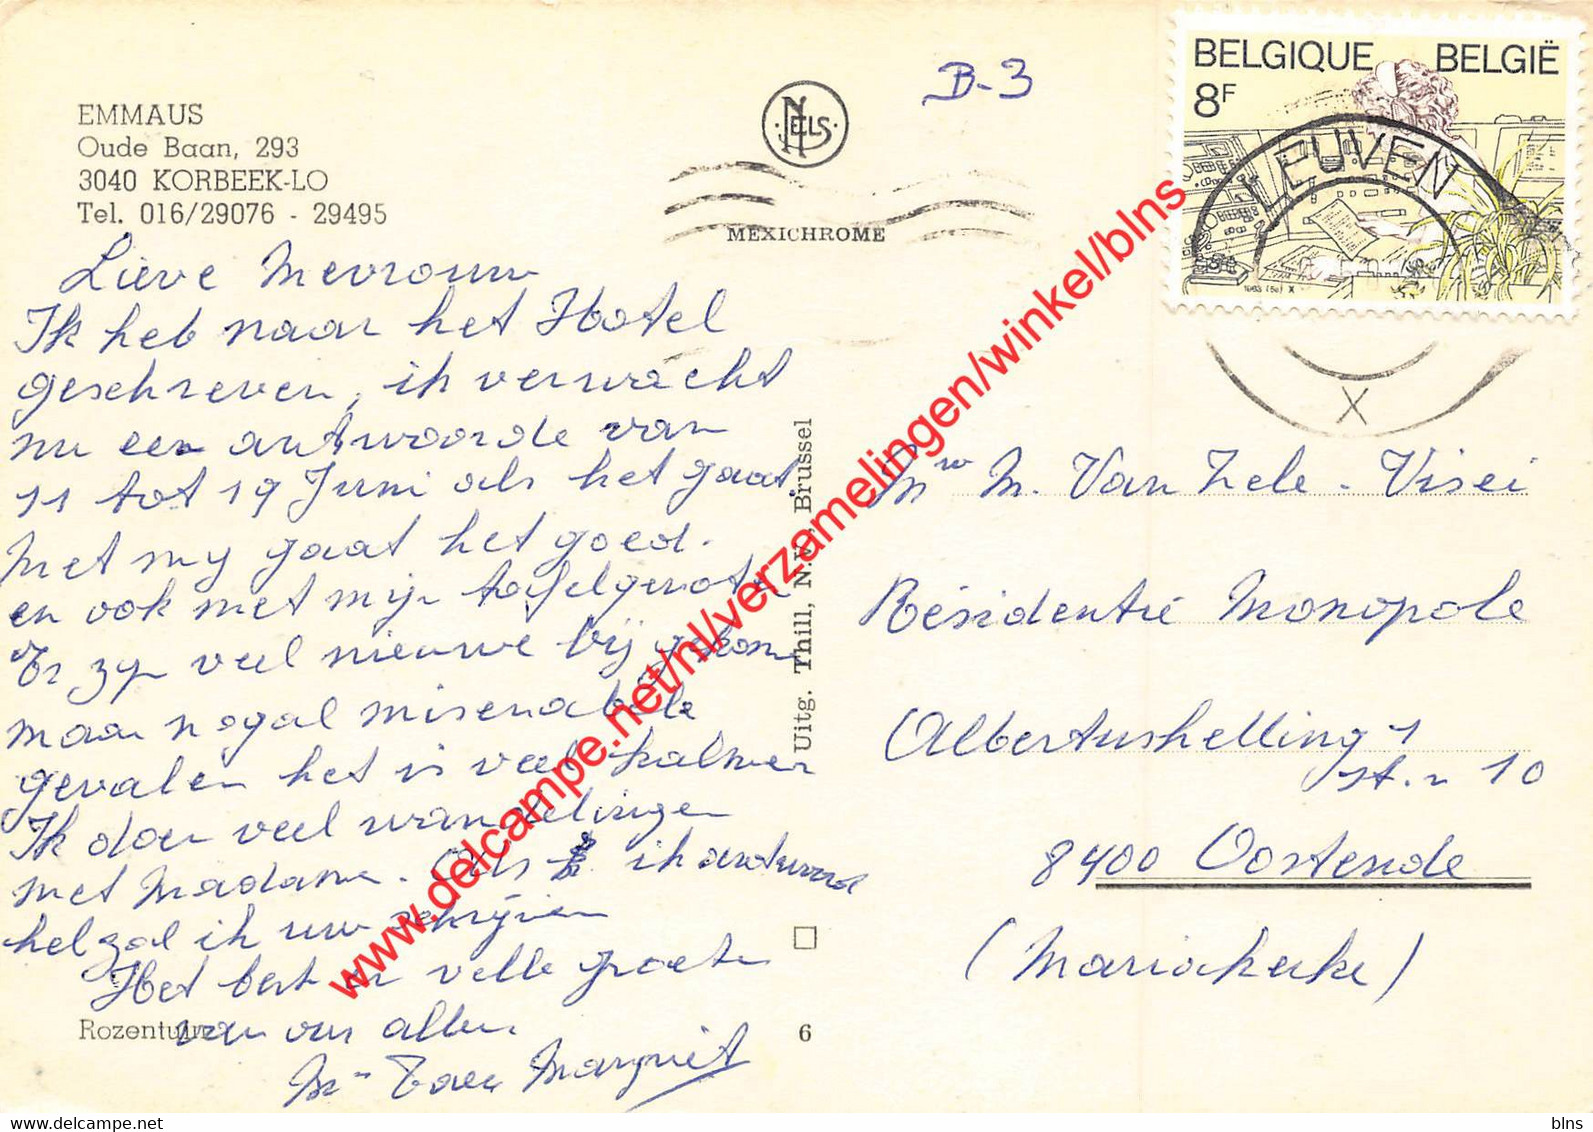 EMMAUS
Oude Baan, 293
3040 KORBEEK-LO
Tel. 016/29076 - 29495
NELS
MEXICHROME
B-3
BELGIQUE BELGIË
8F
LEUVEN
1983 (5e) X
X
Lieve Mevrouw
Ik heb naar het Hotel
geschreven, ik verwacht
nu een antwoorde van
11 tot 19 Juni als het gaat
Met my gaat het goed.
en ook met mijn tafelgenote
Er zyn veel nieuwe bij gekome
maar nogal miserabele
gevalen het is veel kalmer
Ik doen veel wandelingen
met Madame. Als ik antwoord
heb zal ik uw schrijven
Het beste en velle groeten
van ons allen.
Margriet
Rozentuin
6
Uitg. Thill, N.V. Brussel
Mw M. Van Zele - Visei
Résidentie Monopole
Albertushelling 1
10
8400 Oostende
(Mariakerke)
www.delcampe.net/nl/verzamelingen/winkel/blns
delcampe.net
blns